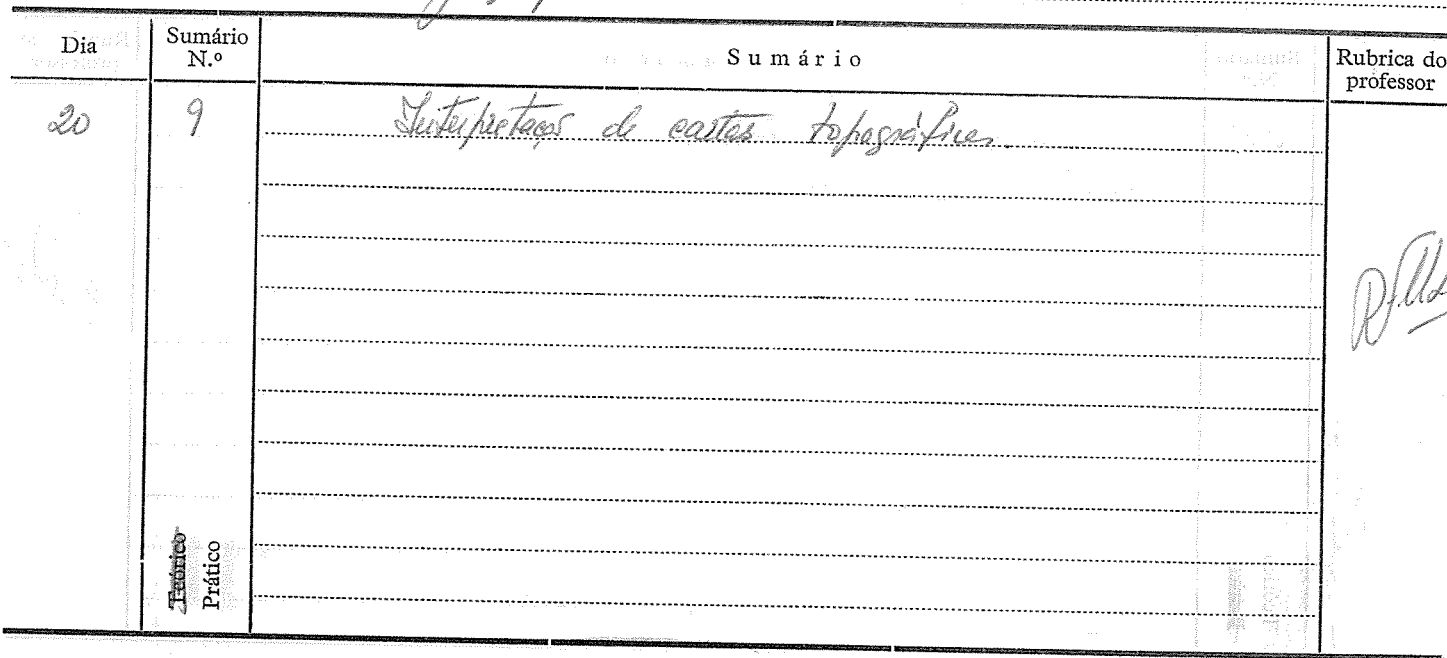 Dia Sumário N.º Sumário Rubrica do professor
20 9 Interpretação de cartas topográficas.
Teórico
Prático